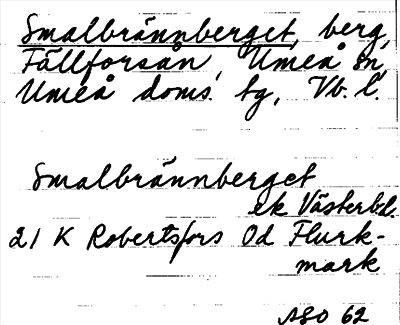 Smalbrännberget, berg,
Fällforsån, Umeå sn,
Umeå doms. tg, Vb. l.
Smalbrännberget
ek Västerbd.
21 K Robertsfors Od Flurk-
mark
ASO 62